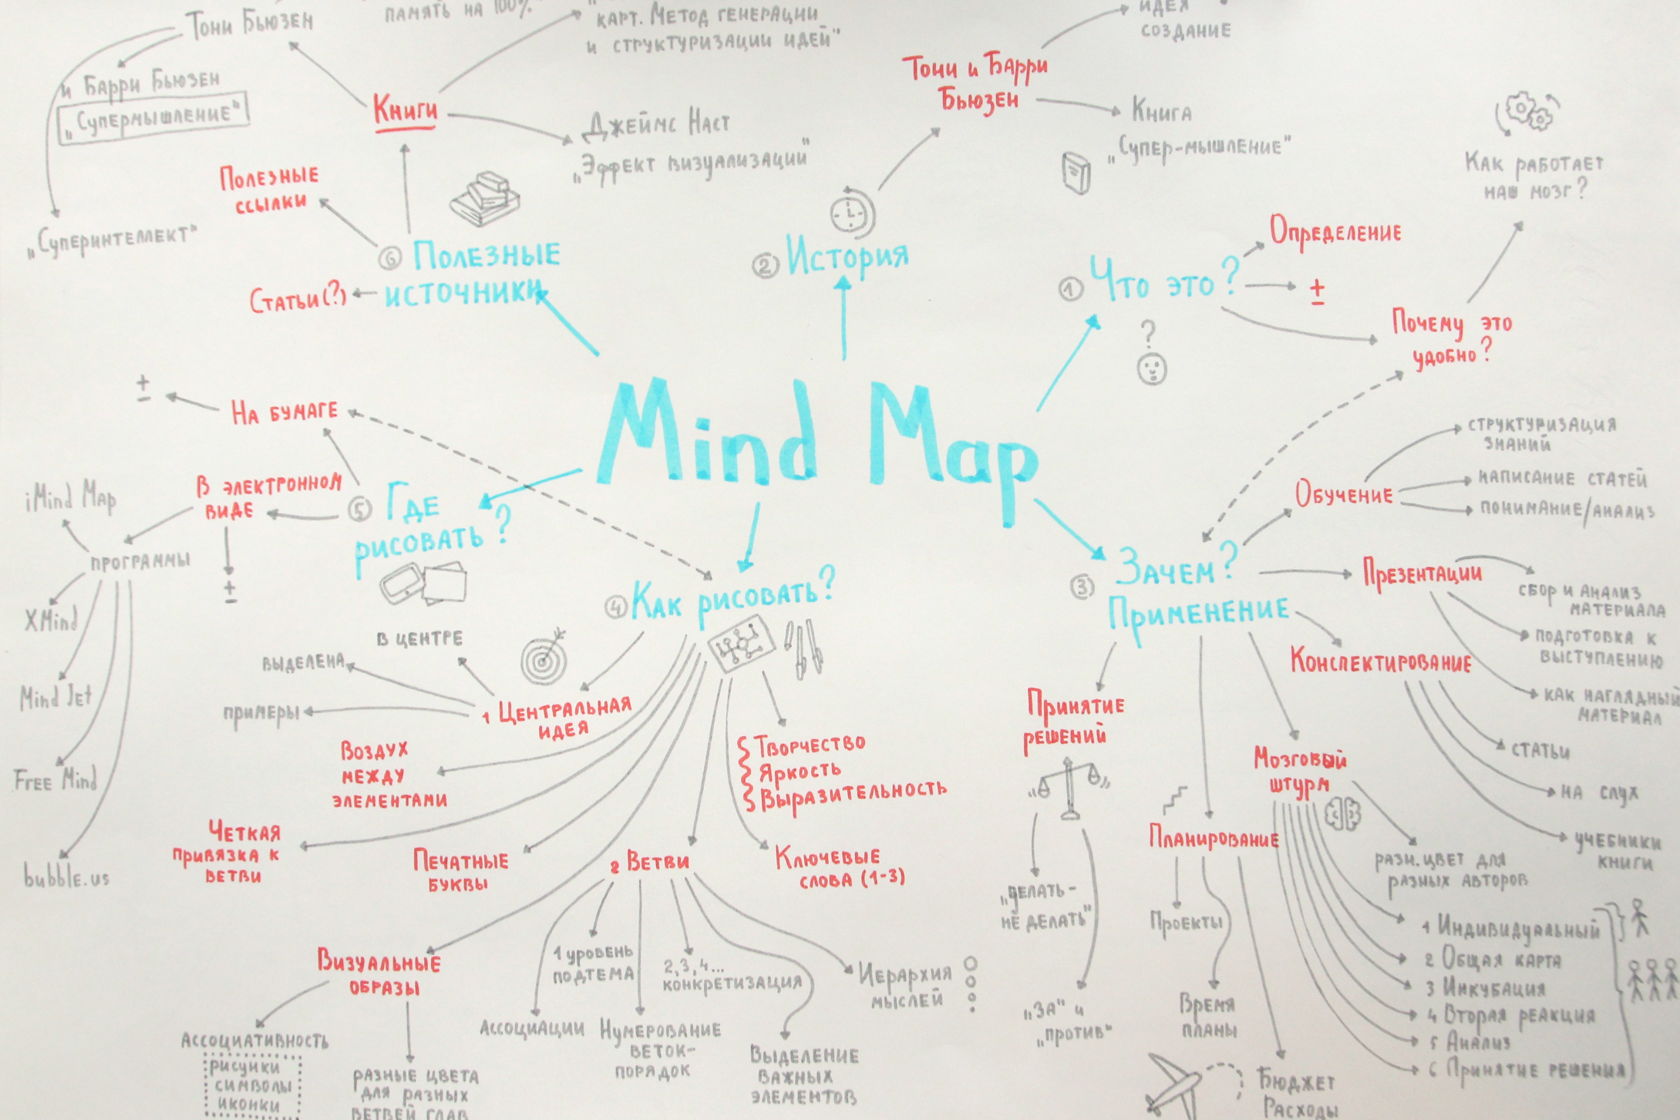 Тони Бьюзен
и Барри Бьюзен
„Супермышление"
„Суперинтеллект"
память на 100%
карт. Метод генерации
и структуризации идей"
Книги
Джеймс Наст
„Эффект визуализации"
Полезные
ссылки
Статьи(?)
6 Полезные
источники
2 История
Тони и Барри
Бьюзен
идея
создание
Книга
„Супер-мышление"
1 Что это?
?
Определение
±
Почему это
удобно?
Как работает
наш мозг?
Mind Map
±
На бумаге
В электронном
виде
±
5 Где
рисовать?
программы
iMind Map
XMind
Mind Jet
Free Mind
bubble.us
4 Как рисовать?
1 Центральная
идея
в центре
выделена
примеры
Воздух
между
элементами
Четкая
привязка к
ветви
Печатные
буквы
Визуальные
образы
Ассоциативность
рисунки
символы
иконки
разные цвета
для разных
ветвей глав
2 Ветви
Ассоциации
1 уровень
подтема
Нумерование
веток-
порядок
2,3,4...
конкретизация
Выделение
важных
элементов
Иерархия
мыслей
Ключевые
слова (1-3)
Творчество
Яркость
Выразительность
3 Зачем?
Применение
Обучение
структуризация
знаний
написание статей
понимание/анализ
Презентации
сбор и анализ
материала
подготовка к
выступлению
как наглядный
материал
Конспектирование
статьи
на слух
учебники
книги
Мозговый
штурм
разн. цвет для
разных авторов
1 Индивидуальный
2 Общая карта
3 Инкубация
4 Вторая реакция
5 Анализ
6 Принятие решения
Планирование
Проекты
Время
планы
Бюджет
Расходы
Принятие
решений
„делать-
не делать"
„за" и
„против"